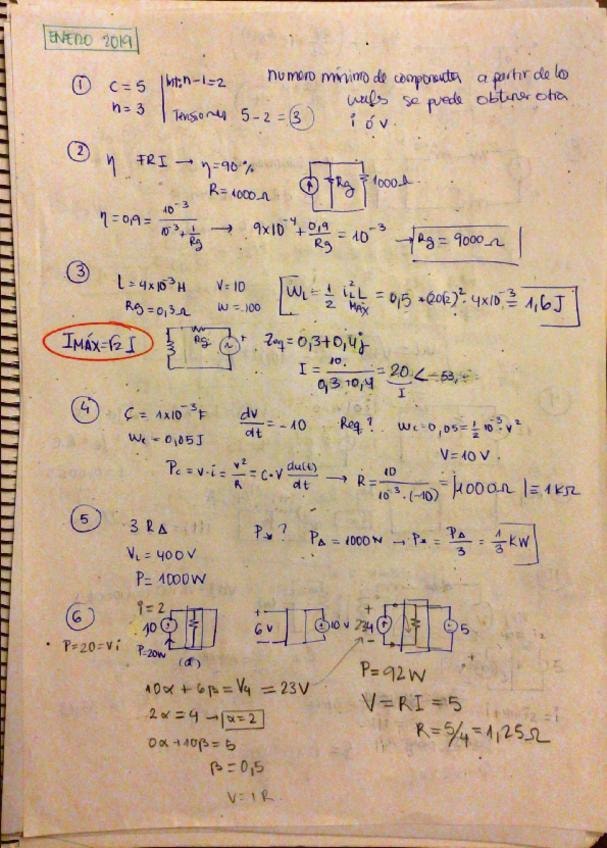 ENERO 2019
① C = 5 | int: n-1 = 2 numero mínimo de componentes a partir de lo
n = 3 | Tensiones 5-2 = ③ cuales se puede obtener otra
i ó v.
② η FRI → η = 90%
R = 1000Ω Rg 1000Ω
η = 0,9 = 10⁻³ / (10⁻³ + 1/Rg) → 9x10⁻⁴ + 0,9/Rg = 10⁻³ → Rg = 9000Ω
③ L = 4x10⁻³H V = 10 W_L = 1/2 i²_MAX L = 0,5 * (20√2)² · 4x10⁻³ = 1,6J
Rg = 0,3Ω w = 100
IMÁX = √2 I Rg + Zeq = 0,3 + 0,4j
I = 10 / (0,3 + 0,4) = 20 < -53,
I
④ C = 1x10⁻³F dv/dt = -10 Req? Wc = 0,05 = 1/2 10⁻³ · v²
Wc = 0,05J V = 10V.
Pc = v·i = v²/R = C·V du(t)/dt → R = 10 / (10⁻³·(-10)) = |1000Ω| = 1kΩ
⑤ 3 RΔ P⅄? PΔ = 1000W → P⅄ = PΔ/3 = 1/3 KW
V_L = 400V
P = 1000W
⑥ i = 2
· P=20=vi 10 + 6V - 10V + 234 - 5
P=20W
(a)
10α + 6β = V4 = 23V P = 92W
2α = 4 → α = 2 V = RI = 5
0α + 10β = 5 R = 5/4 = 1,25Ω
β = 0,5
V = I R.